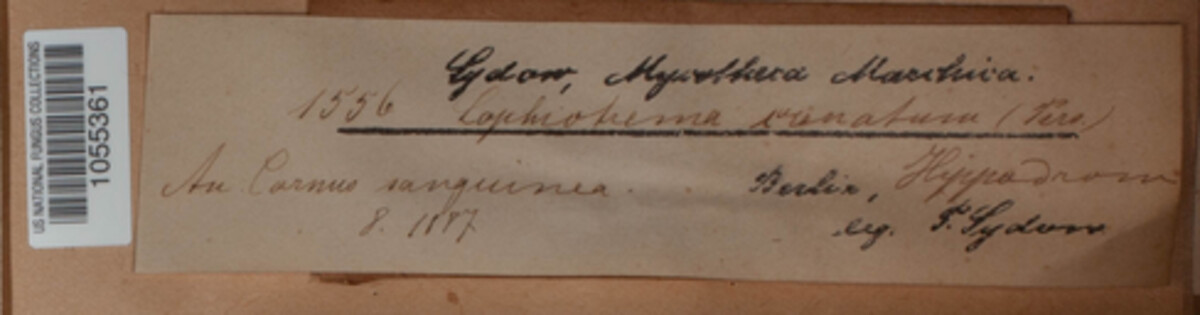 US NATIONAL FUNGUS COLLECTIONS
1055361
Sydow, Mycotheca Marchica.
1556 Lophiotrema crenatum (Pers.)
An Cornus sanguinea.
Berlin, Hippodrom
8. 1887
leg. P. Sydow